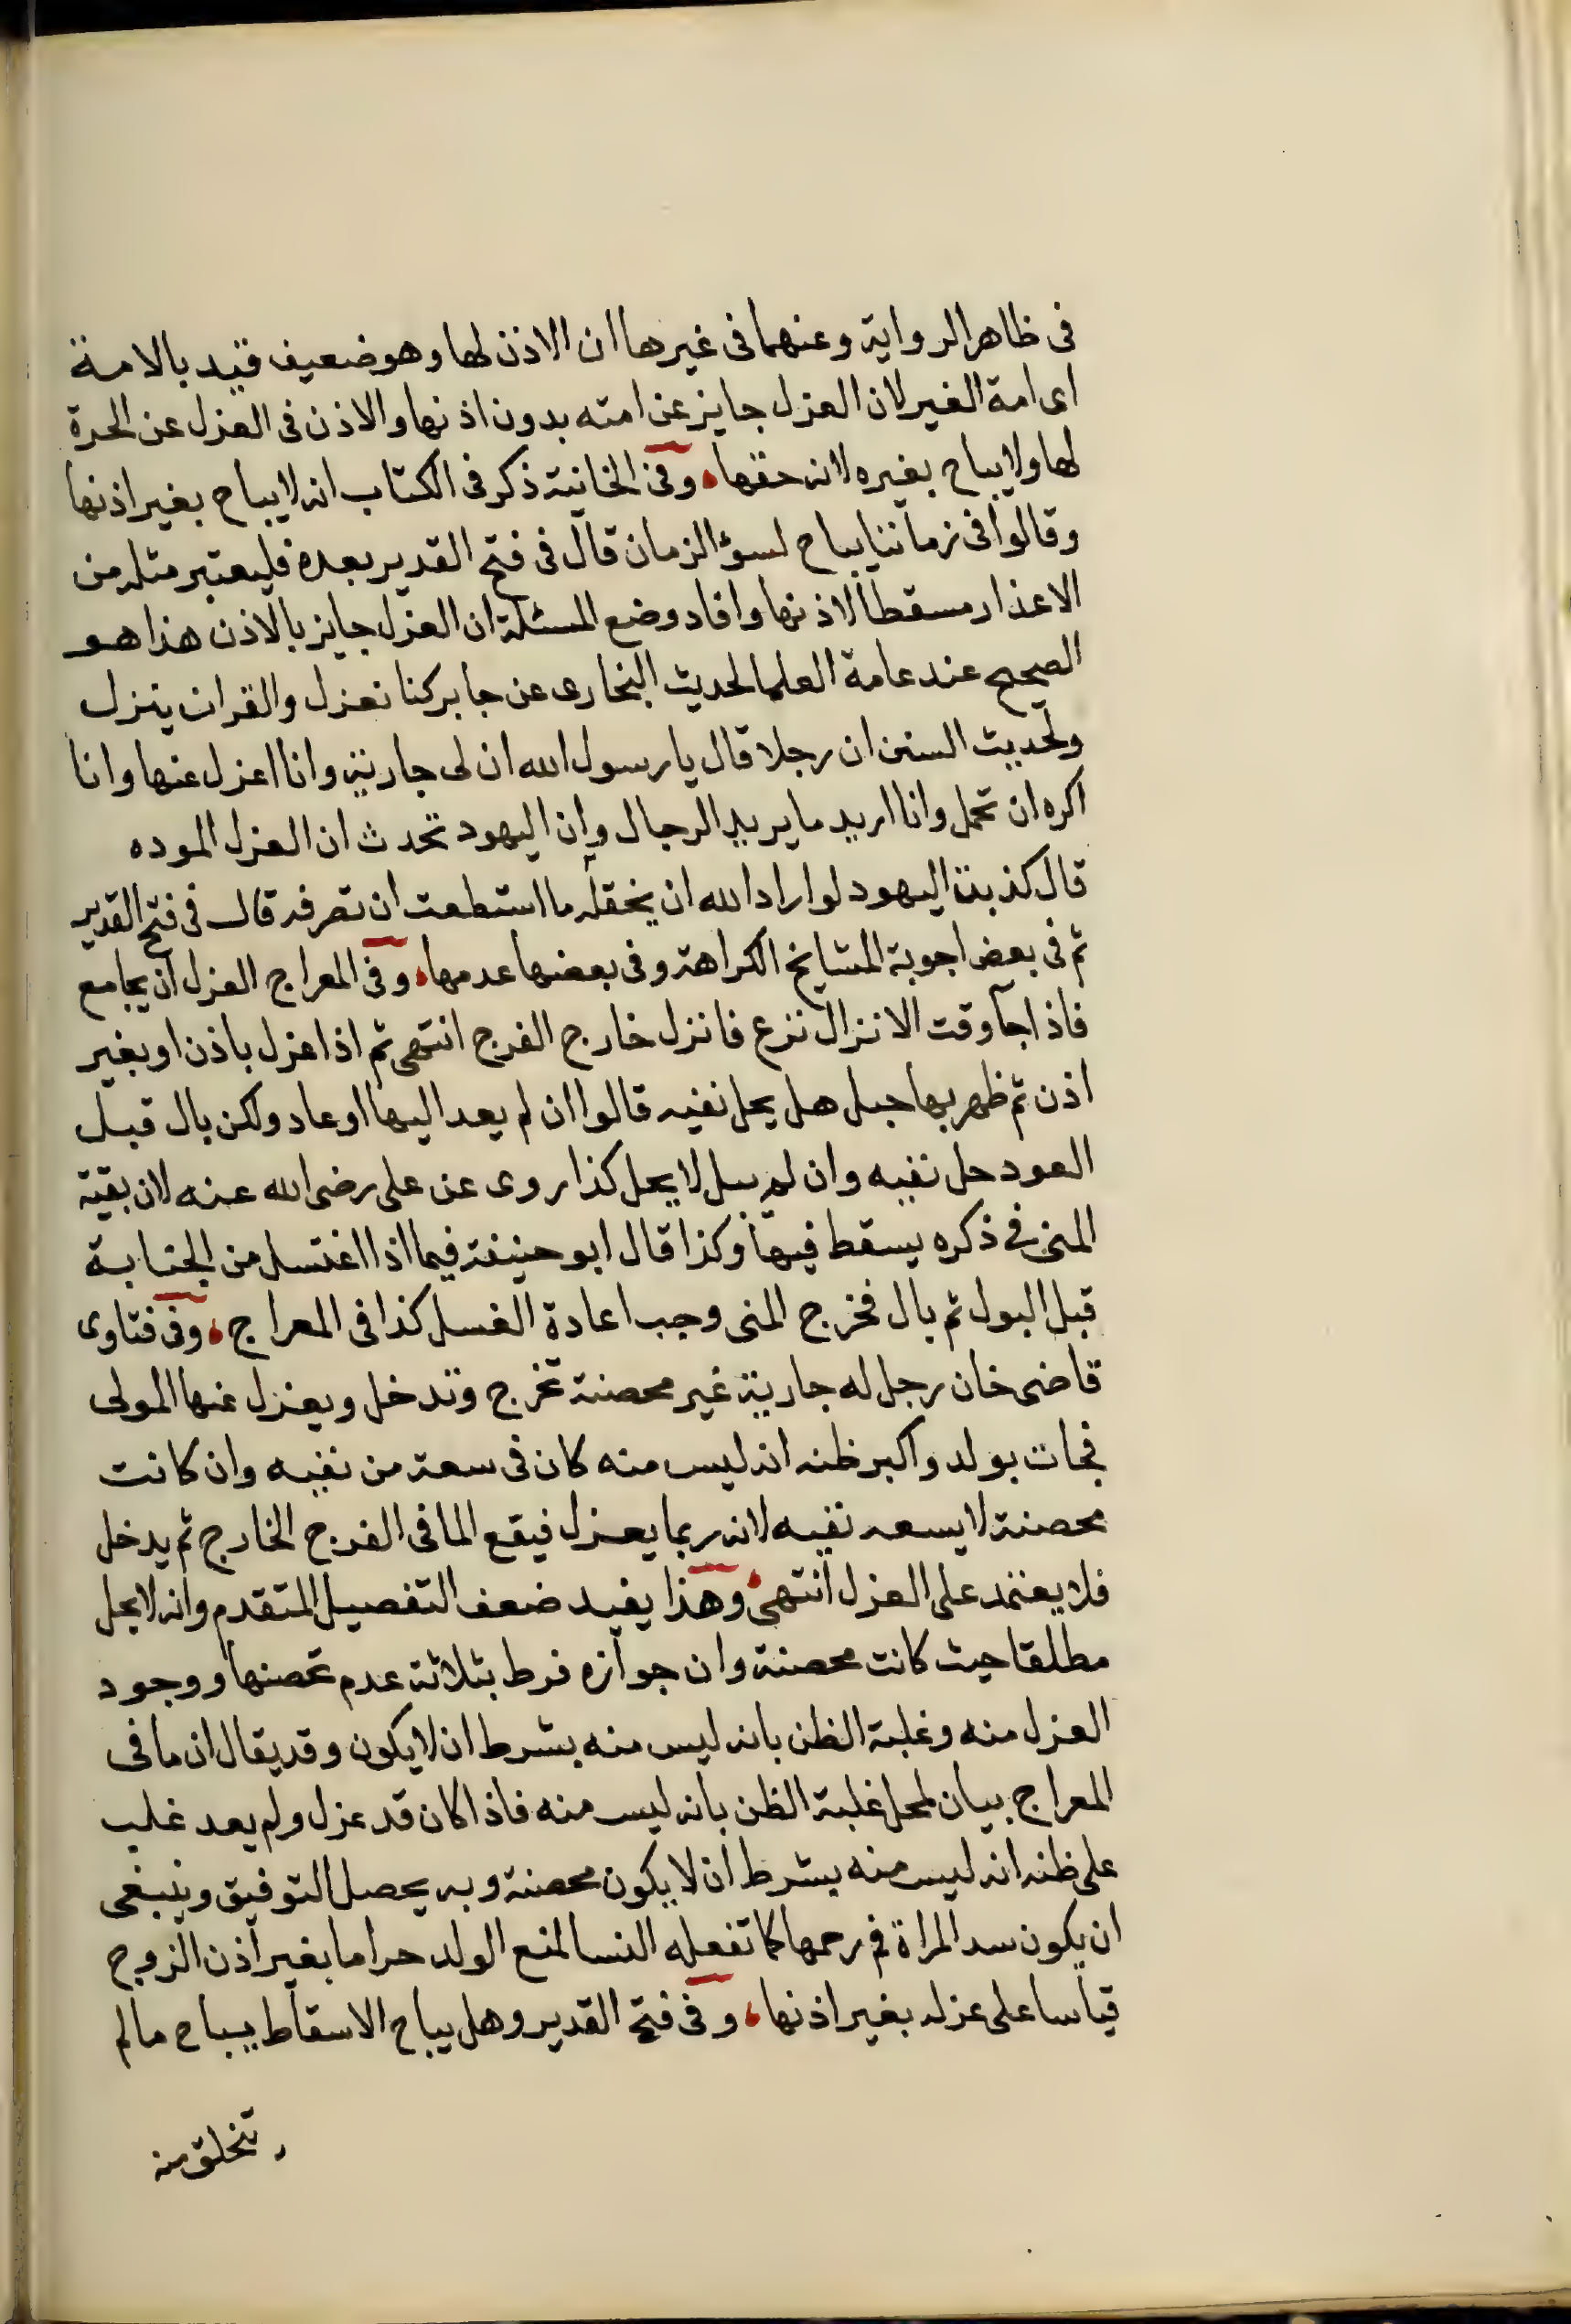 فى ظاهر الرواية وعنهما فى غيرها ان الاذن لها وهو ضعيف قيد بالامة
اى امة الغير لان العزل جايز عن امته بدون اذنها والاذن فى العزل عن الحرة
لها ولا يباح بغيره لانه حقها، وفى الخانية ذكر فى الكتاب انه لا يباح بغير اذنها
وقالوا فى زماننا يباح لسؤ الزمان قال فى فتح القدير بعده فليعتبر مثله من
الاعذار مسقطا لاذنها وافاد وضع المسئلة ان العزل جايز بالاذن هذا هو
الصحيح عند عامة العلما لحديث البخارى عن جابر كنا نعزل والقران ينزل
ولحديث السنن ان رجلا قال يا رسول الله ان لى جارية وانا اعزل عنها وانا
اكره ان تحمل وانا اريد ما يريد الرجال وان اليهود تحدث ان العزل الموده
قال كذبت اليهود لو اراد الله ان يخقله ما استطعت ان تصرفه قال فى فتح القدير
ثم فى بعض اجوبة المشايخ الكراهة وفى بعضها عدمها، وفى المعراج العزل ان يجامع
فاذا جآ وقت الانزال نزع فانزل خارج الفرج انتهى ثم اذا عزل باذن او بغير
اذن ثم ظهر بها حبل هل يحل نفيه قالوا ان لم يعد اليها او عاد ولكن بال قبل
العود حل نفيه وان لم يبل لا يحل كذا روى عن على رضى الله عنه لان بقية
المنى فى ذكره يسقط فيها وكذا قال ابو حنيفة فيما اذا اغتسل من الجنابة
قبل البول ثم بال فخرج المنى وجب اعادة الغسل كذا فى المعراج، وفى فتاوى
قاضى خان رجل له جارية غير محصنة تخرج وتدخل ويعزل عنها المولى
فجات بولد واكبر ظنه انه ليس منه كان فى سعة من نفيه وان كانت
محصنة لا يسعه نفيه لانه ربما يعزل فيقع الما فى الفرج الخارج ثم يدخل
فلا يعتمد على العزل انتهى، وهذا يفيد ضعف التفصيل المتقدم وانه لا يحل
مطلقا حيث كانت محصنة وان جوازه فرط بثلاثة عدم تحصنها ووجود
العزل منه وغلبة الظن بانه ليس منه بشرط ان لا يكون وقد يقال ان ما فى
المعراج بيان لمحل غلبة الظن بانه ليس منه فاذا كان قد عزل ولم يعد غلب
على ظنه انه ليس منه بشرط ان لا يكون محصنة وبه يحصل التوفيق وينبغى
ان يكون سد المراة فم رحمها كما تفعله النسا لمنع الولد حراما بغير اذن الزوج
قياسا على عزله بغير اذنها، وفى فتح القدير وهل يباح الاسقاط يباح ما لم
تتخلق منه